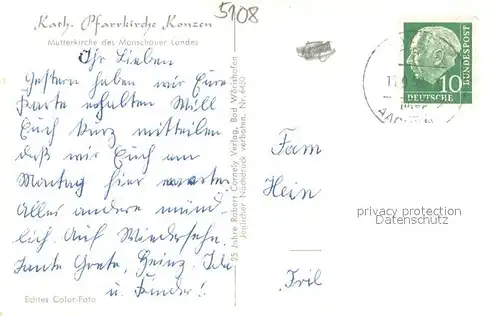 Kath. Pfarrkirche Konzen
Mutterkirche des Monschauer Landes
5108
Ihr Lieben
Gestern haben wir Eure
Karte erhalten Will
Euch kurz mitteilen
daß wir Euch am
Montag hier erwarten.
Alles andere münd-
lich. Auf Wiedersehn.
Tante Greta, Heinz, Ida
u. Kinder!
Echtes Color-Foto
25 Jahre Robert Cornely Verlag, Bad Wörishofen
Jeglicher Nachdruck verboten. Nr. 6450
10
DEUTSCHE
BUNDESPOST
Fam
Hein
privacy protection
Datenschutz